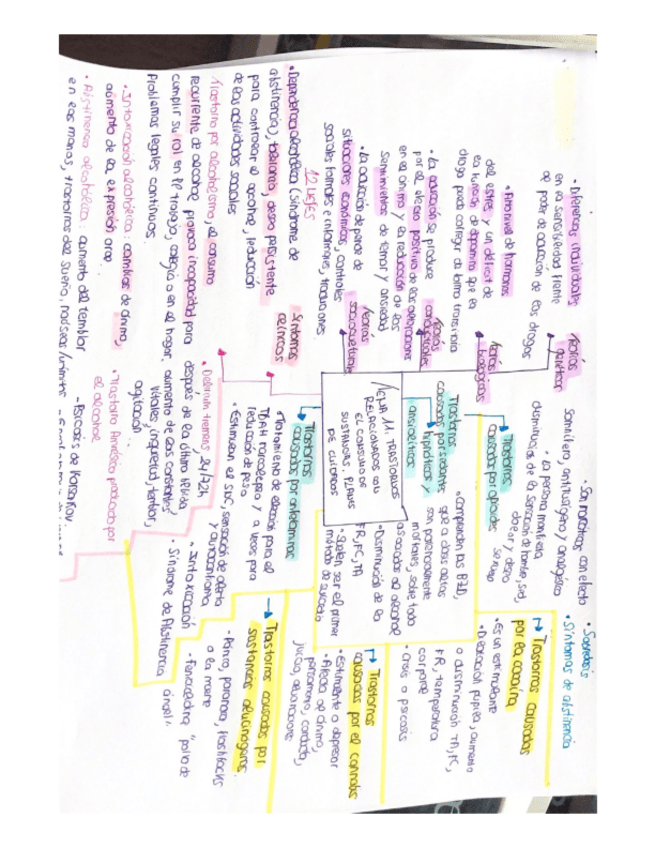 • Diferencias individuales
en la sensibilidad frente
al poder de adicción de las drogas
Teorías
genéticas
• Alto nivel de hormonas
del estrés y un déficit de
la función de dopamina que la
droga puede corregir de forma transitoria
Teorías
biológicas
• La adicción se produce
por el efecto positivo de las alteraciones
en el ánimo y la reducción de los
sentimientos de temor y ansiedad
Teorías
conductuales
• La adicción depende de
situaciones económicas, controles
sociales formales e informales, tradiciones.
Teorías
socioculturales
12 meses
Síntomas
clínicos
• Dependencia alcohólica (síndrome de
abstinencia), tolerancia, deseo persistente
para controlar el alcohol, reducción
de las actividades sociales
Trastorno por alcoholismo, el consumo
recurrente de alcohol provoca incapacidad para
cumplir su rol en el trabajo, colegio o en el hogar,
Problemas legales continuos.
• Intoxicación alcohólica: cambios de ánimo,
aumento de la expresión oral
• Abstinencia alcohólica: aumento del temblor
en las manos, trastornos del sueño, náuseas/vómitos
TEMA 11. TRASTORNOS
RELACIONADOS CON
EL CONSUMO DE
SUSTANCIAS. PLANES
DE CUIDADOS
• Son narcóticos con efecto
somnífero, antitusígeno y analgésico
• La persona manifiesta
disminución de la sensación de hambre, sed,
dolor y deseo
sexual
Trastornos
causados por opioides
• Sobredosis
• Síntomas de abstinencia
Trastornos
causados por sedantes
hipnóticos y
ansiolíticos
• Comprenden las BZD,
que a dosis altas
son potencialmente
mortales, sobre todo
asociadas al alcohol
• Disminución de la
FR, FC, TA
• Suelen ser el primer
método de suicidio
Trastornos
causados por anfetaminas
• Tratamiento de elección para el
TDAH narcolepsia y a veces para
reducción de peso
• Estimulan el SNC, sensación de alerta
y autoconfianza
• Intoxicación
• Síndrome de Abstinencia
• Delirium tremens 24/72h
después de la última bebida,
aumento de las constantes
vitales, inquietud, temblor,
agitación
• Trastorno Amnésico producido por
el alcohol
- Psicosis de Korsakov
Trastornos causados
por la cocaína
• es un estimulante
• Dilatación pupilar, aumento
o disminución TA, FC,
FR, temperatura
corporal
• Crisis o psicosis
Trastornos
causados por el cannabis
• estimulante o depresor
• Afecta al ánimo,
pensamiento, conducta,
juicio, alucinaciones
Trastornos causados por
sustancias alucinógenas.
- Pánico, paranoia, flashbacks
o la muerte
- Fenciclidina "polvo de
ángel".